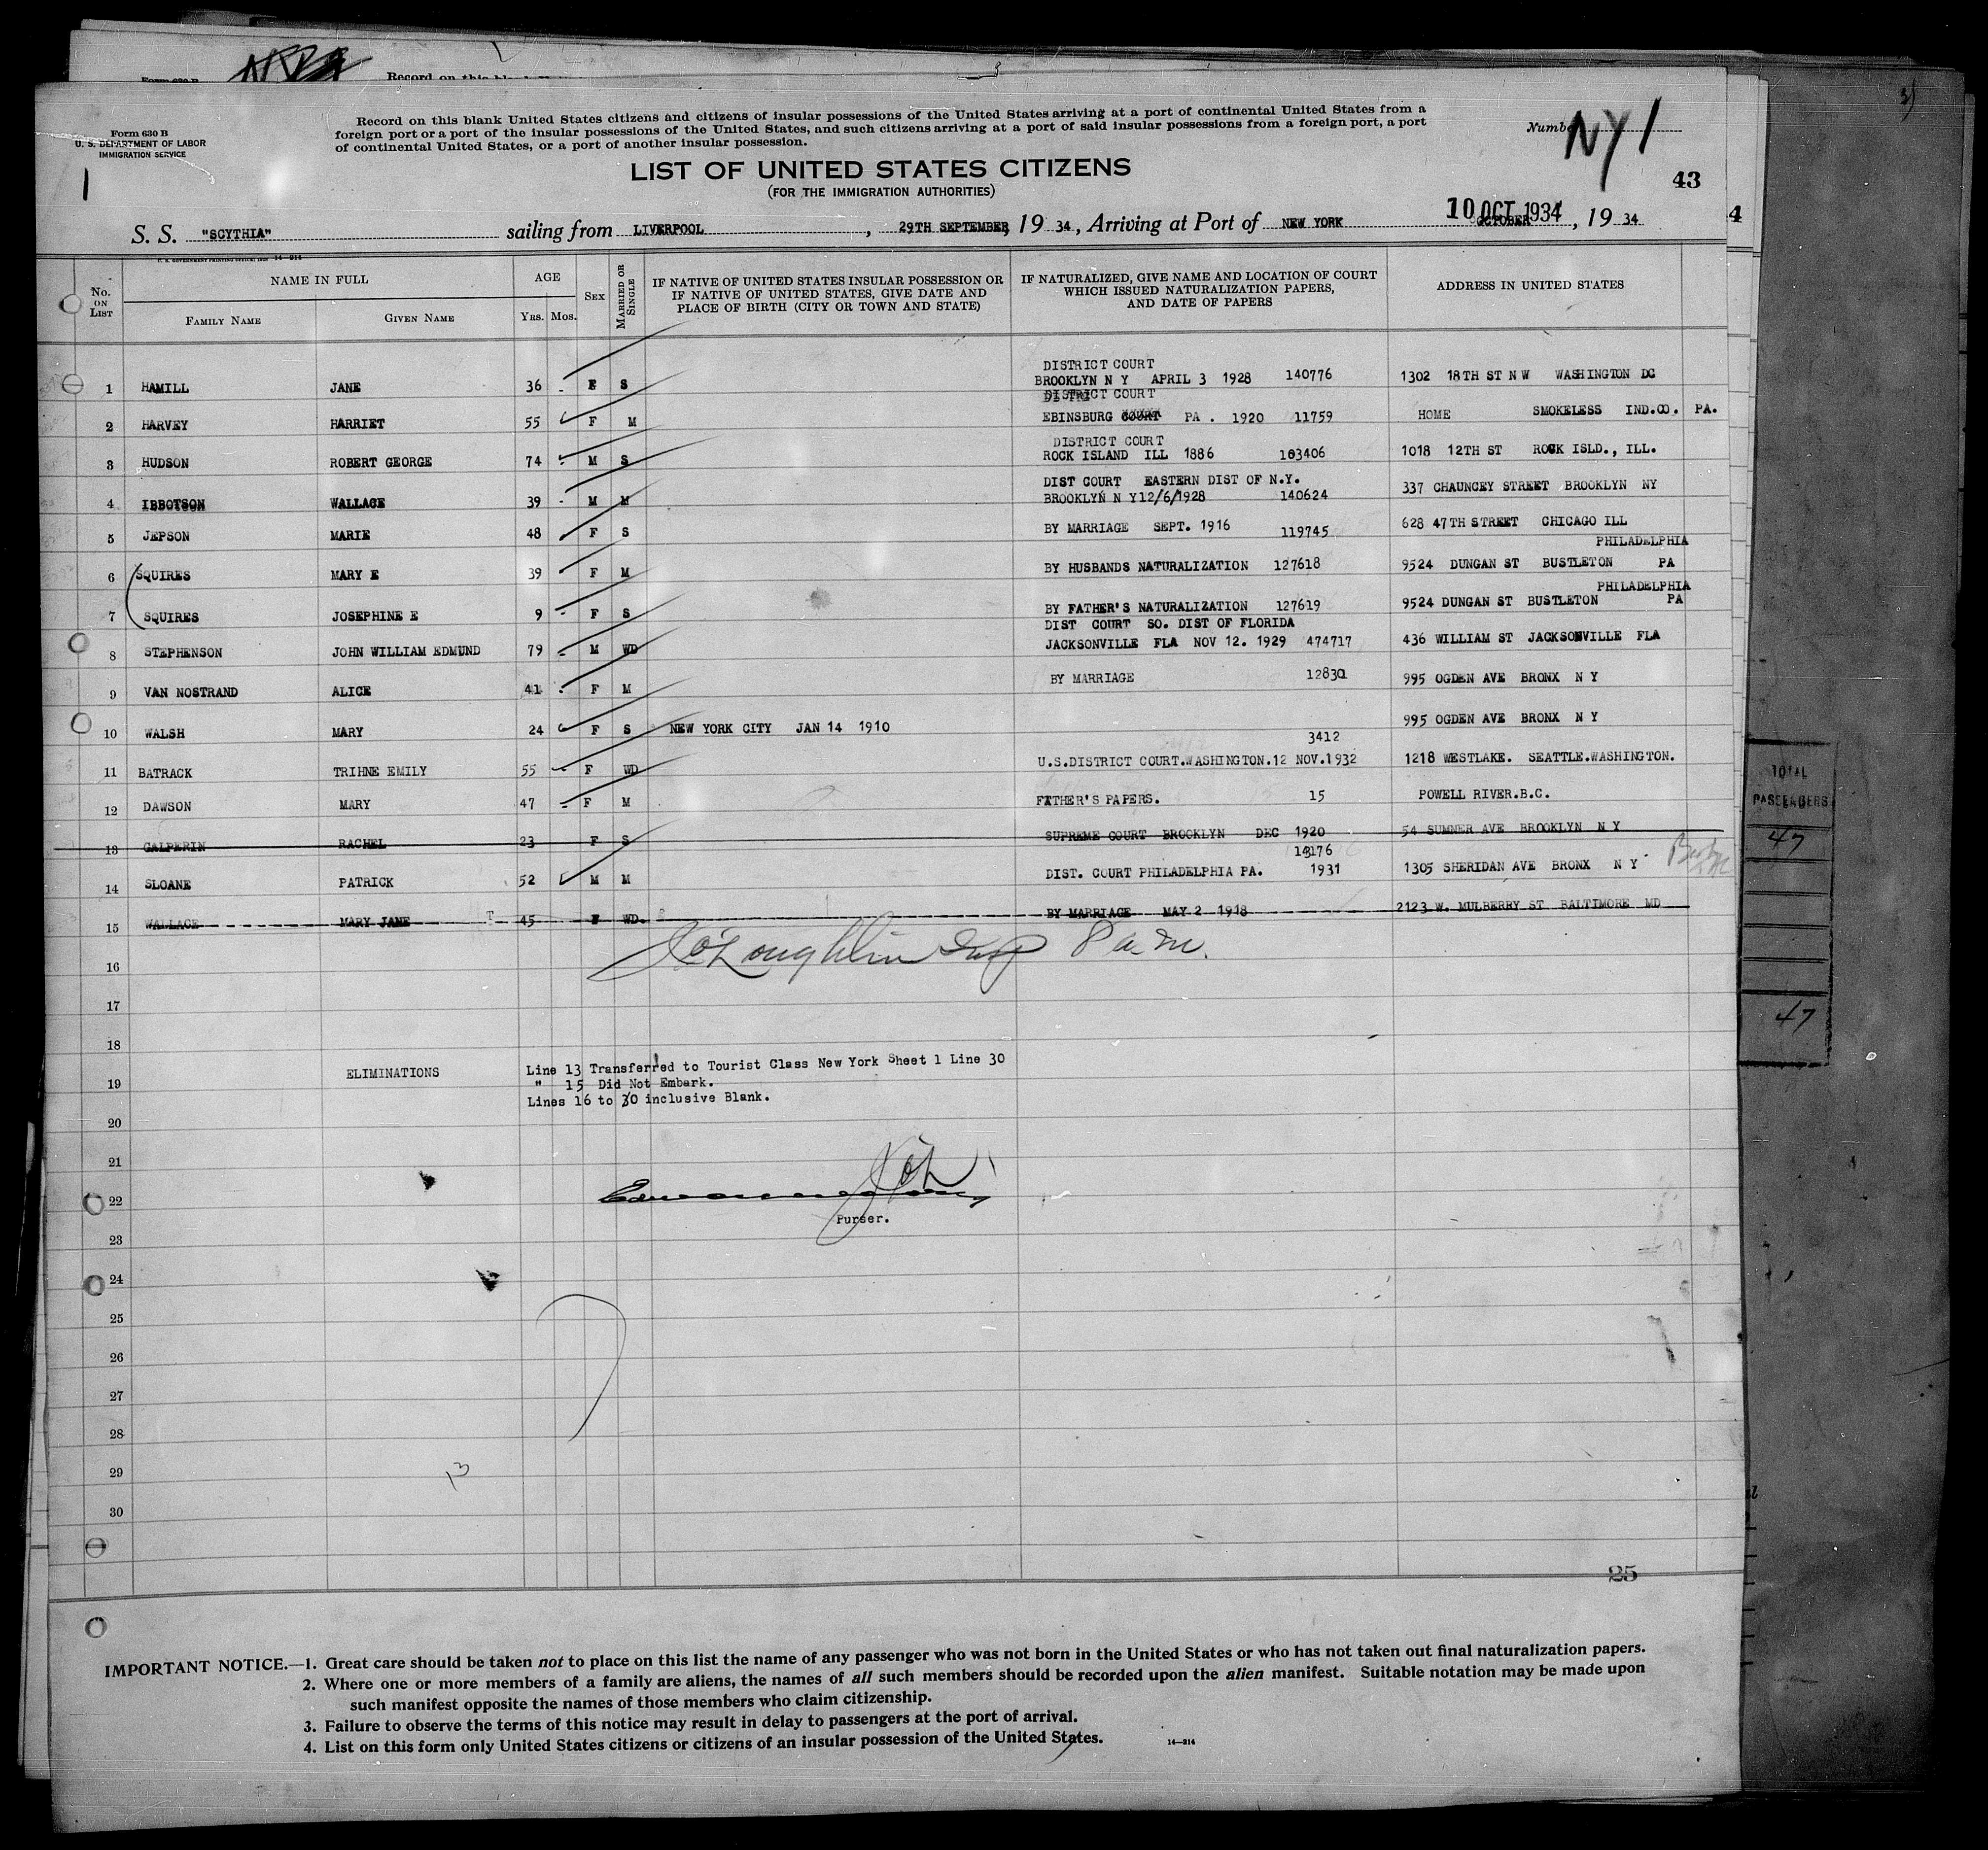 Form 630 B
U. S. DEPARTMENT OF LABOR
IMMIGRATION SERVICE
1
Record on this blank United States citizens and citizens of insular possessions of the United States arriving at a port of continental United States from a
foreign port or a port of the insular possessions of the United States, and such citizens arriving at a port of said insular possessions from a foreign port, a port
of continental United States, or a port of another insular possession.
Number NY 1
LIST OF UNITED STATES CITIZENS
(FOR THE IMMIGRATION AUTHORITIES)
43
S. S. "SCYTHIA" sailing from LIVERPOOL, 29TH SEPTEMBER, 19 34, Arriving at Port of NEW YORK 10 OCT 1934 OCTOBER, 19 34
4
No. ON LIST
NAME IN FULL
FAMILY NAME GIVEN NAME
AGE
YRS. MOS.
SEX
MARRIED OR SINGLE
IF NATIVE OF UNITED STATES INSULAR POSSESSION OR
IF NATIVE OF UNITED STATES, GIVE DATE AND
PLACE OF BIRTH (CITY OR TOWN AND STATE)
IF NATURALIZED, GIVE NAME AND LOCATION OF COURT
WHICH ISSUED NATURALIZATION PAPERS,
AND DATE OF PAPERS
ADDRESS IN UNITED STATES
DISTRICT COURT
1 HAMILL JANE 36 - F S BROOKLYN N Y APRIL 3 1928 140776 1302 18TH ST N W WASHINGTON DC
DISTRICT COURT
2 HARVEY HARRIET 55 F M EBINSBURG COURT PA . 1920 11759 HOME SMOKELESS IND.CO. PA.
DISTRICT COURT
3 HUDSON ROBERT GEORGE 74 M S ROCK ISLAND ILL 1886 103406 1018 12TH ST ROCK ISLD., ILL.
DIST COURT EASTERN DIST OF N.Y.
4 IBBOTSON WALLACE 39 - M M BROOKLYN N Y 12/6/1928 140624 337 CHAUNCEY STREET BROOKLYN NY
5 JEPSON MARIE 48 F S BY MARRIAGE SEPT. 1916 119745 628 47TH STREET CHICAGO ILL
PHILADELPHIA
6 SQUIRES MARY E 39 F M BY HUSBANDS NATURALIZATION 127618 9524 DUNGAN ST BUSTLETON PA
PHILADELPHIA
7 SQUIRES JOSEPHINE E 9 - F S BY FATHER'S NATURALIZATION 127619 9524 DUNGAN ST BUSTLETON PA
DIST COURT SO. DIST OF FLORIDA
8 STEPHENSON JOHN WILLIAM EDMUND 79 - M WD JACKSONVILLE FLA NOV 12. 1929 474717 436 WILLIAM ST JACKSONVILLE FLA
9 VAN NOSTRAND ALICE 41 F M BY MARRIAGE 12830 995 OGDEN AVE BRONX N Y
10 WALSH MARY 24 F S NEW YORK CITY JAN 14 1910 995 OGDEN AVE BRONX N Y
3412
11 BATRACK TRIHNE EMILY 55 - F WD U.S.DISTRICT COURT.WASHINGTON.12 NOV.1932 1218 WESTLAKE. SEATTLE.WASHINGTON.
12 DAWSON MARY 47 - F M FATHER'S PAPERS. 15 POWELL RIVER.B.C.
13 GALPERIN RACHEL 23 F S SUPREME COURT BROOKLYN DEC 1920 54 SUMNER AVE BROOKLYN N Y
14 SLOANE PATRICK 52 M M DIST. COURT PHILADELPHIA PA. 1931 1305 SHERIDAN AVE BRONX N Y
15 WALLACE MARY JANE T 45 F WD. BY MARRIAGE MAY 2 1918 2123 W. MULBERRY ST BALTIMORE MD
J O'Loughlin Insp 8 a.m.
16
17
18
19 ELIMINATIONS Line 13 Transferred to Tourist Class New York Sheet 1 Line 30
" 15 Did Not Embark.
Lines 16 to 30 inclusive Blank.
20
21
22
Purser.
23
24
25
26
27
28
29
13
30
25
TOTAL
PASSENGERS
47
47
IMPORTANT NOTICE.—1. Great care should be taken not to place on this list the name of any passenger who was not born in the United States or who has not taken out final naturalization papers.
2. Where one or more members of a family are aliens, the names of all such members should be recorded upon the alien manifest. Suitable notation may be made upon
such manifest opposite the names of those members who claim citizenship.
3. Failure to observe the terms of this notice may result in delay to passengers at the port of arrival.
4. List on this form only United States citizens or citizens of an insular possession of the United States.
14—214